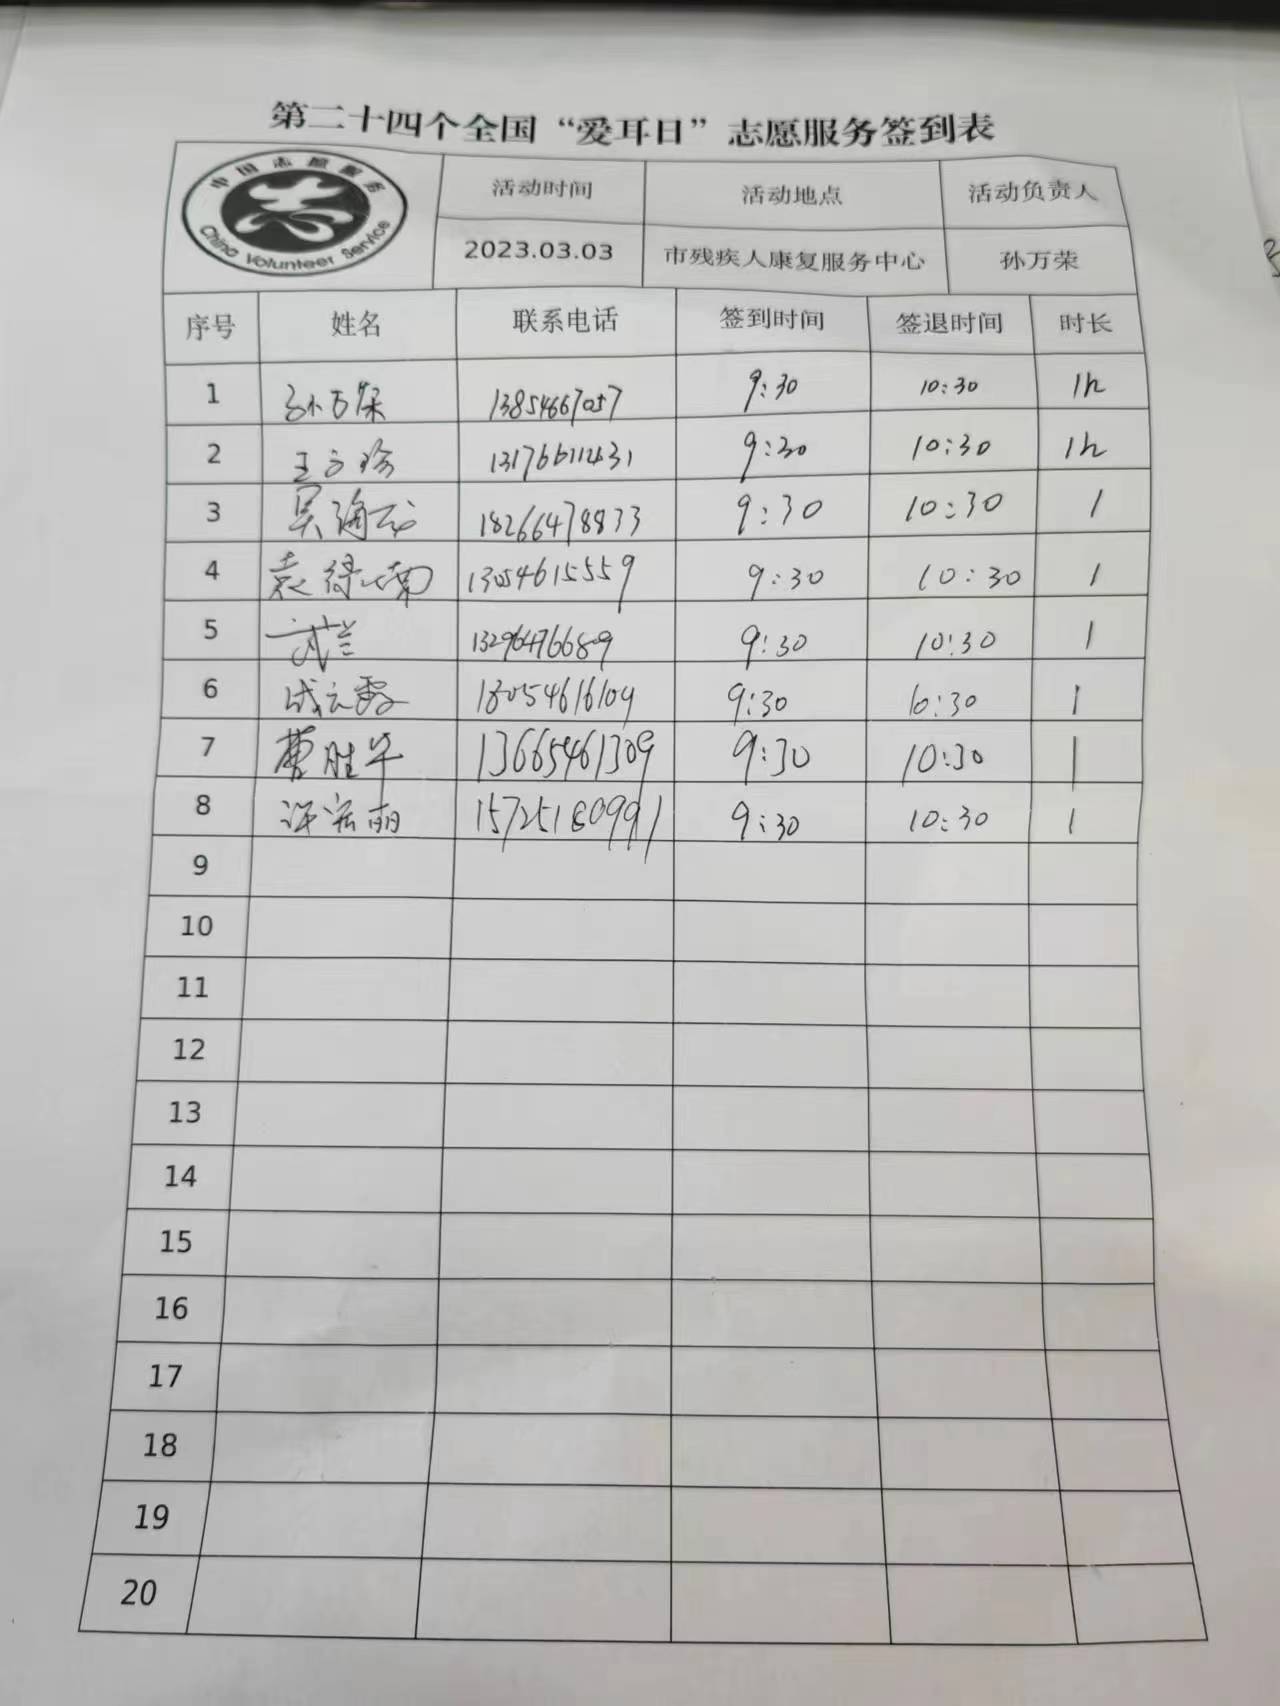 第二十四个全国“爱耳日”志愿服务签到表
中国志愿服务
China Volunteer Service
活动时间 活动地点 活动负责人
2023.03.03 市残疾人康复服务中心 孙万荣
序号 姓名 联系电话 签到时间 签退时间 时长
1 孙万荣 13854667057 9:30 10:30 1h
2 王 9:30 10:30 1h
3 吴海 18266478833 9:30 10:30 1
4 袁绿 13054615559 9:30 10:30 1
5 武兰 13296476689 9:30 10:30 1
6 成云霞 18054616109 9:30 10:30 1
7 曹胜华 13665461309 9:30 10:30 1
8 许宏丽 15725180991 9:30 10:30 1
9
10
11
12
13
14
15
16
17
18
19
20